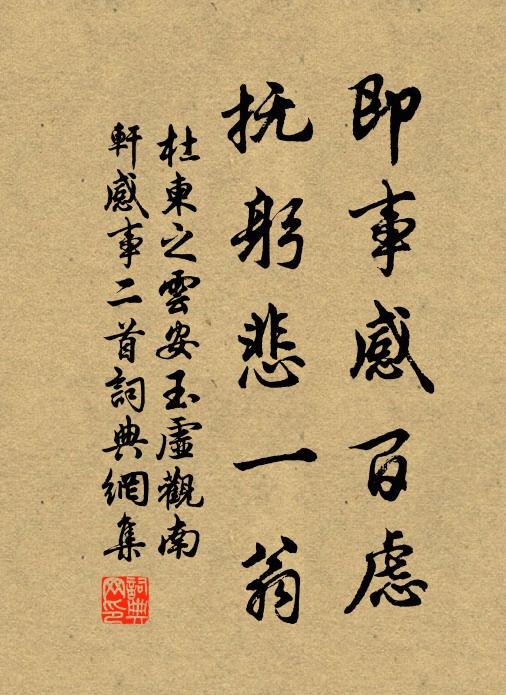 即事感百慮
抚躬悲一翁
杜東之雲安玉虛觀南
軒感事二首詞典網集
詞典网印